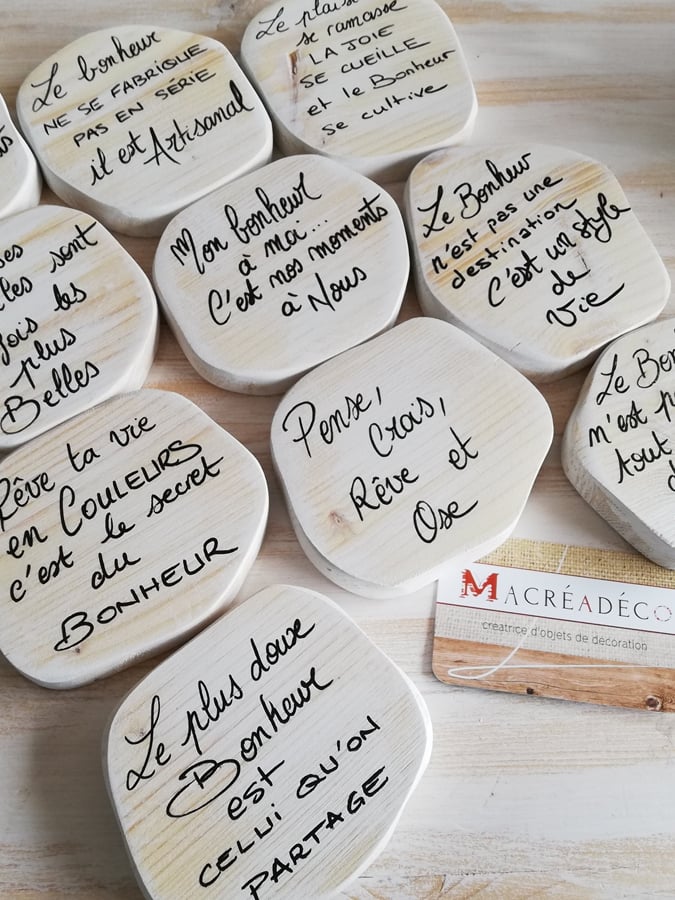 Le bonheur
NE SE FABRIQUE
PAS EN SÉRIE
il est Artisanal
Le plaisir
se ramasse
LA JOIE
SE CUEILLE
et le Bonheur
se cultive
Mon bonheur
à moi...
C'est nos moments
à Nous
Le Bonheur
n'est pas une
destination
C'est un style
de
Vie
sont
les
plus
Belles
Pense,
Crois,
Rêve et
Ose
Le Bon
n'est p
tout
d
Rêve ta vie
en COULEURS
c'est le secret
du
BONHEUR
MACRÉADÉCO
créatrice d'objets de décoration
Le plus doux
Bonheur
est
CELUI QU'ON
PARTAGE